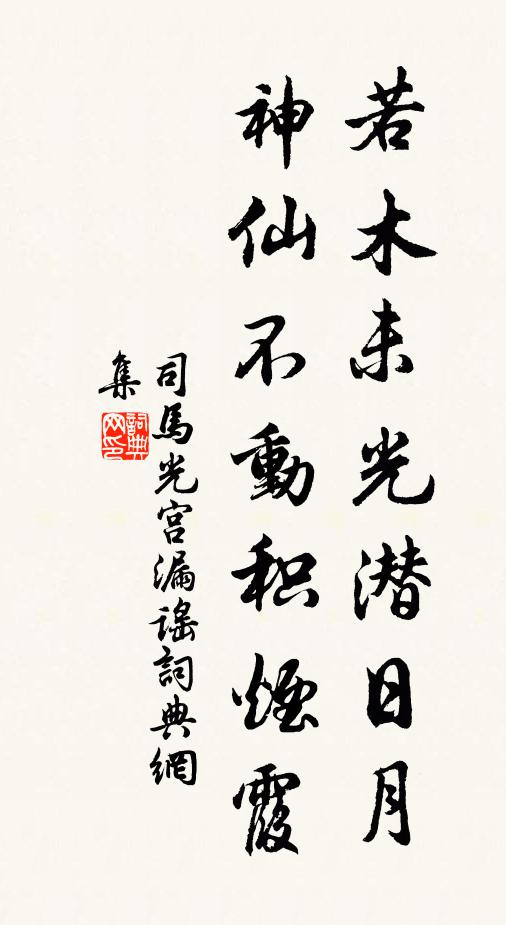 若木未光潜日月
神仙不動积煙霞
司馬光宫漏谣詞典網
集
詞典网印